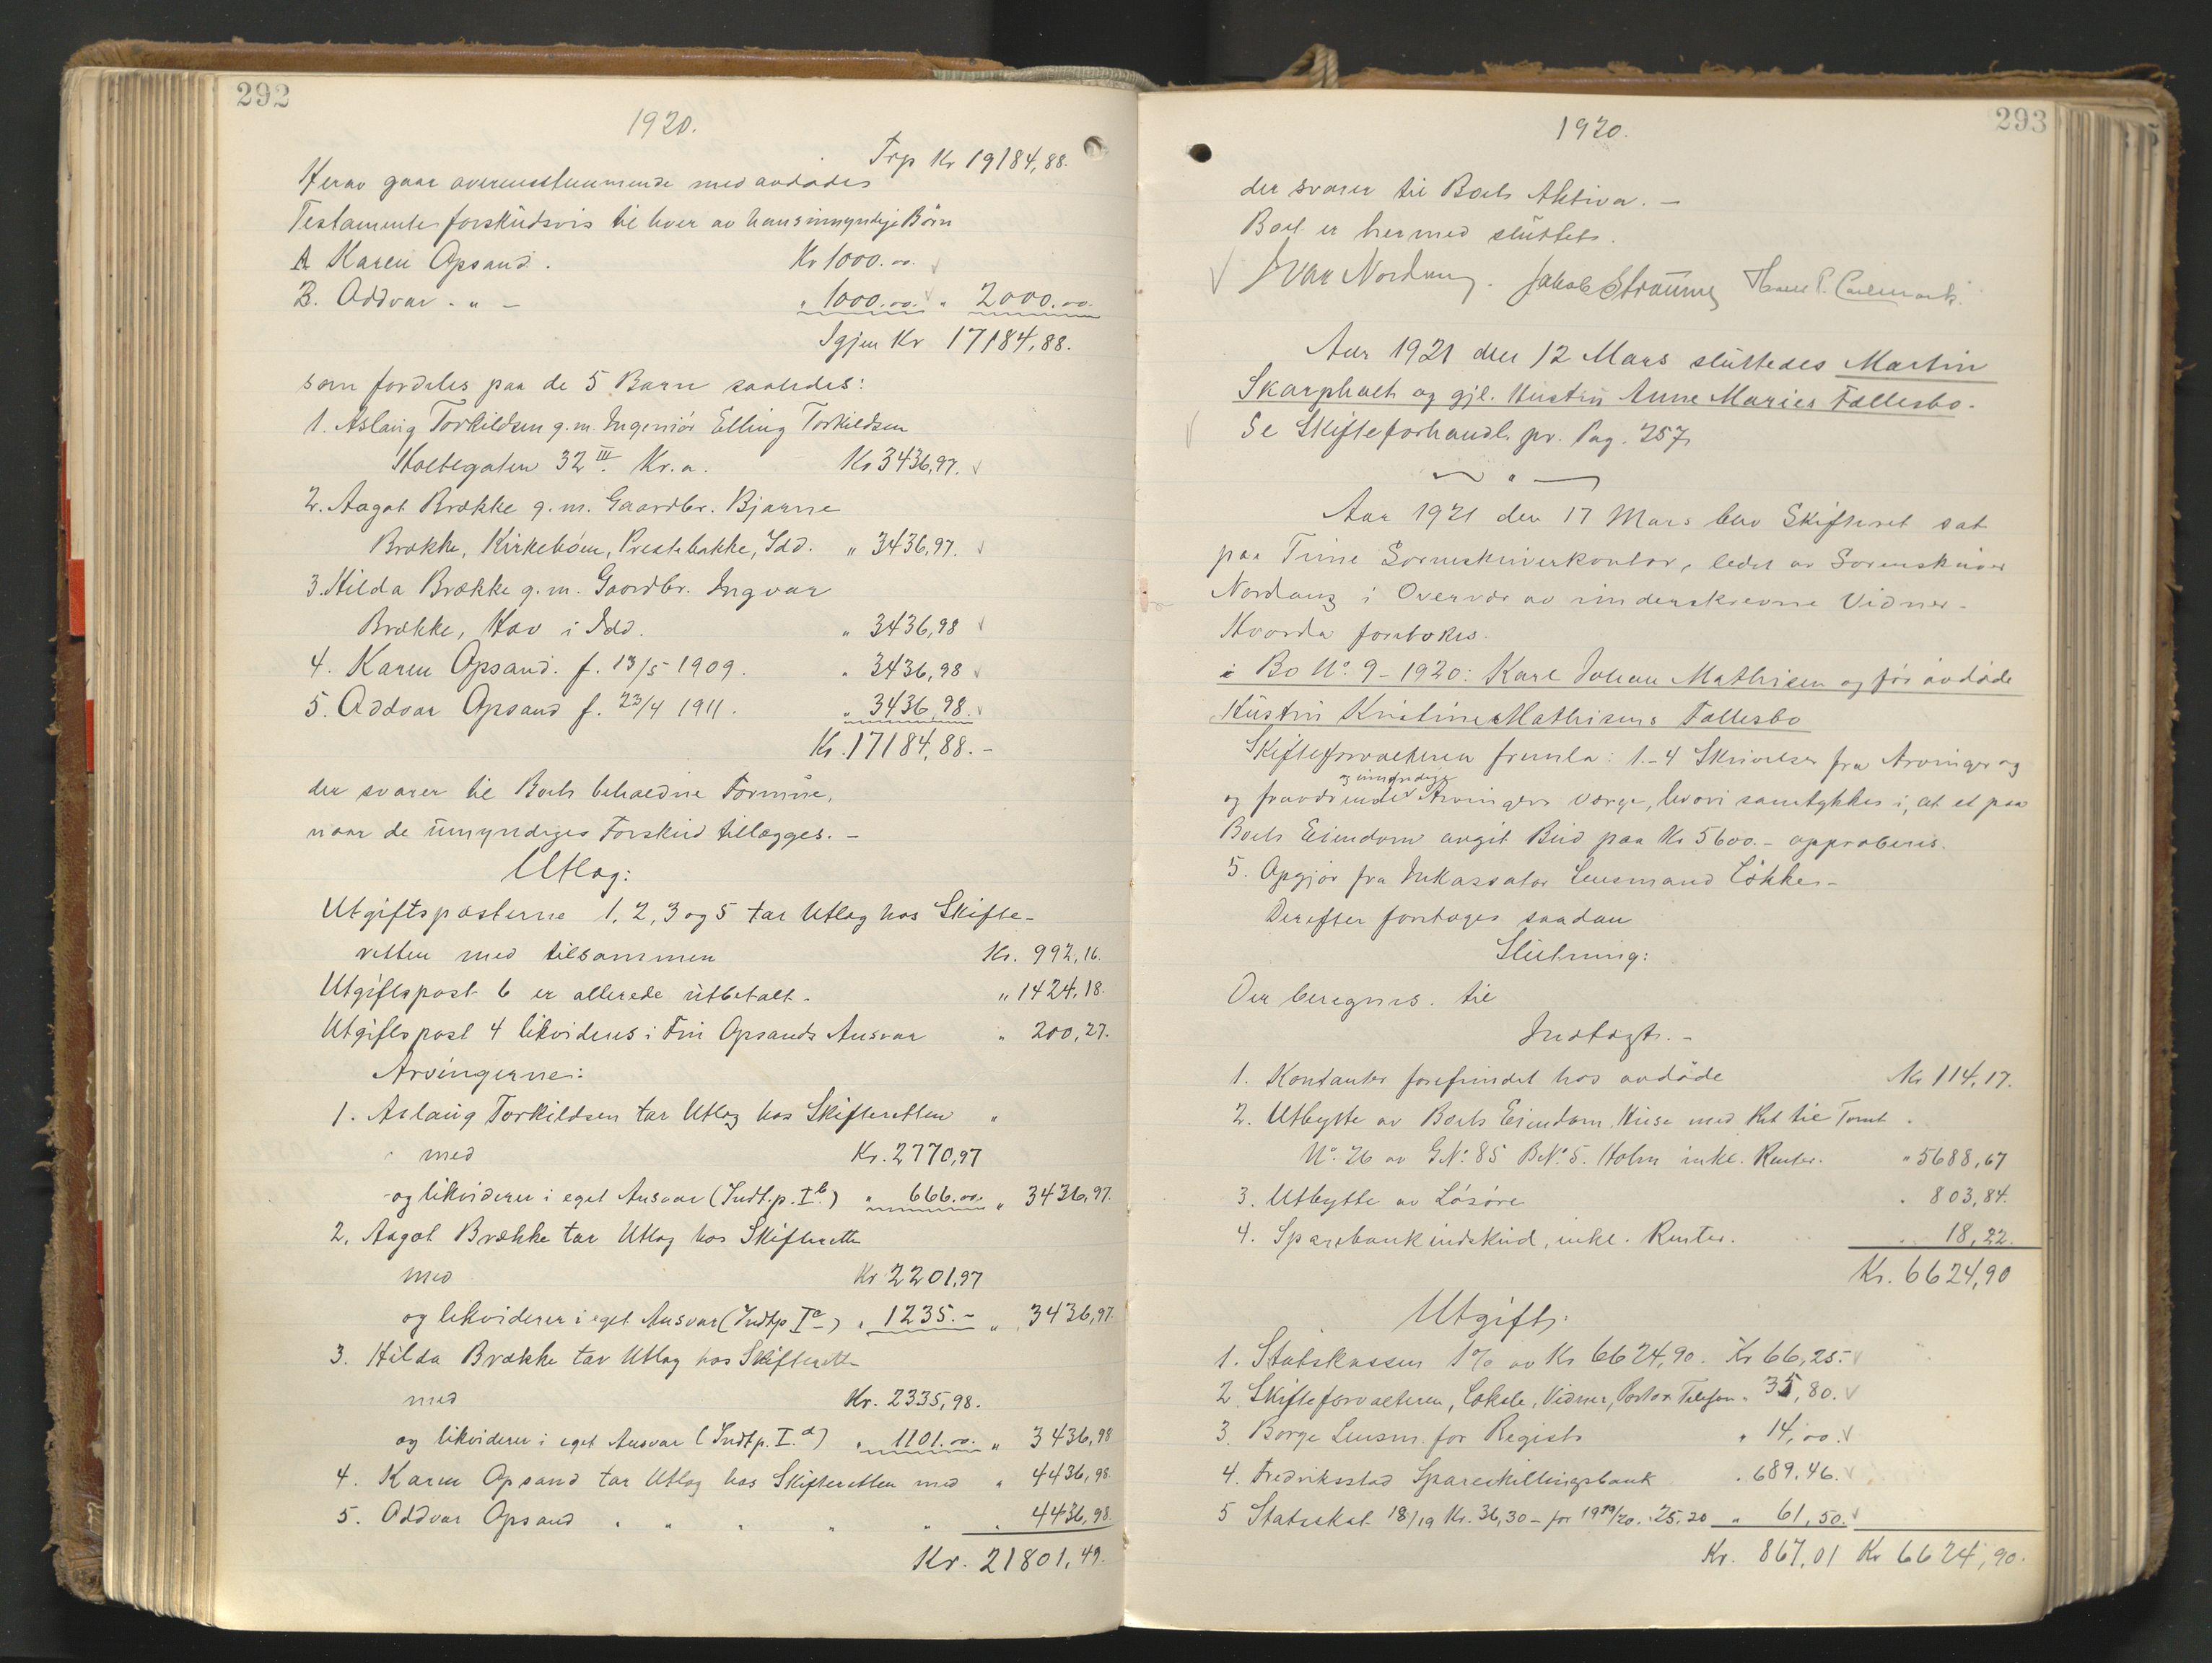 292
1920.
Trp Kr 19184,88.
Herav gaar overensstemmende med avdødes
Testamente forskudsvis til hver av hans umyndige Børn
A Karen Opsand. Kr 1000.00
B. Oddvar - " - " 1000.00 " 2000.00
Igjen Kr 17184,88.
som fordeles paa de 5 Barn saaledes:
1. Aslaug Torkildsen g.m. Ingeniør Elling Torkildsen
Holtegaten 32 III. Kr.a. Kr 3436,97.
2. Aagot Brække g.m. Gaardbr. Bjarne
Brække, Kirkebøen, Prestebakke, Idd. " 3436,97.
3. Hilda Brække g.m. Gaardbr. Ingvar
Brække, Hov i Idd. " 3436,98
4. Karen Opsand. f. 13/5 1909. " 3436,98
5. Oddvar Opsand f. 23/4 1911. " 3436,98.
Kr. 17184,88.-
der svarer til Boets beholdne Formue,
naar de umyndiges Forskud tillægges.-
Utlæg:
Utgiftsposterne 1, 2, 3 og 5 tar Utlæg hos Skifte-
retten med tilsammen Kr. 992,16.
Utgiftspost 6 er allerede utbetalt. " 1424,18.
Utgiftspost 4 likvideres i Fru Opsands Ansvar " 200,27.
Arvingerne:
1. Aslaug Torkildsen tar Utlæg hos Skifteretten "
med Kr. 2770,97
og likviderer i eget Ansvar (Indt.p. I b.) " 666.00 " 3436,97.
2. Aagot Brække tar Utlæg hos Skifteretten
med Kr 2201,97
og likviderer i eget Ansvar (Indtp I c) " 1235.- " 3436,97.
3. Hilda Brække tar Utlæg hos Skifteretten
med Kr. 2335,98.
og likviderer i eget Ansvar (Indt.p. I. d) " 1101.00 " 3436,98
4. Karen Opsand tar Utlæg hos Skifteretten med " 4436,98.
5. Oddvar Opsand " " " " " " 4436,98.
Kr. 21801,49.
293
1920.
der svarer til Boets Aktiva.-
Boet er hermed sluttet.
Ivar Nordang. Jakob Straume Hans P.
Aar 1921 den 12 Mars sluttedes Martin
Skarpholt og gjl. Hustru Anne Maries Fællesbo.
Se Skifteforhandl. pr. Pag. 257,
Aar 1921 den 17 Mars blev Skifteret sat
paa Tune Sorenskriverkontor, ledet av Sorenskriver
Nordang i Overvær av underskrevne Vidner-
Hvorda foretokes.
i Bo No. 9 - 1920: Karl Johan Mathisen og før avdøde
Hustru Kristine Mathisens Fællesbo
Skifteforvalteren fremla: 1.-4 Skrivelser fra Arvinger og
og umyndige
og fraværende Arvingers Værge, hvori samtykkes i, at et paa
Boets Eiendom avgit Bud paa Kr 5600.- approberes.
5. Opgjør fra Inkassator Lensmand Løkke.-
Derefter foretages saadan
Slutning:
Der beregnes til
Indtægt.-
1. Kontanter forefundet hos avdøde Kr 114,17.
2. Utbytte av Boets Eiendom, Huse med Ret til Tomt "
No. 26 av G.No. 85 B.No. 5. Holm inkl. Renter. " 5688,67
3. Utbytte av Løsøre " 803,84.
4. Sparebankindskud, inkl. Renter. " 18,22.
Kr. 6624,90
Utgift:
1. Statskassen 1% av Kr 6624,90. Kr 66,25.-
2. Skifteforvalteren, Lokale, Vidner, Porto & Telefon " 35,80.
3. Borge Lensm. for Registr. " 14,00.
4. Fredriksstad Spareskillingsbank " 689.46.
5 Statsskat 18/19 Kr. 36,30 - for 1919/20. " 25.20 " 61,50.
Kr. 867,01 Kr 6624,90.